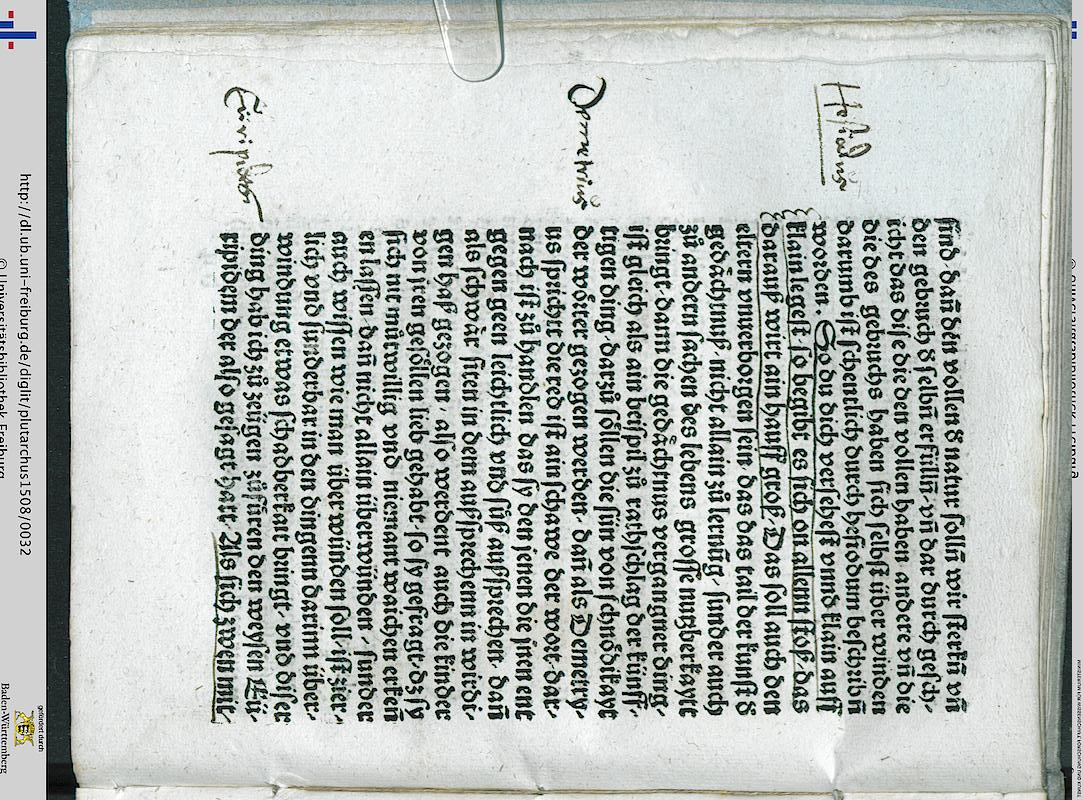 Hesiodus
Demetrius
Euripides
sind dañ den vollen d̕ natur solln̄ wir sterkn̄ vñ
den gebruch d̕ selbn̄ erfülln̄, vñ dar durch gesch-
icht das dise die den vollen haben andere vñ die
die des gebruchs haben sich selbst überwinden
darumb ist schentlich durch hesiodum beschribn̄
worden. So du dich versehest vnnd klain auff
klain legest so begibt es sich on allenn stoß das
darauß wirt ain hauff groß. Das soll auch den
eltern vnuerborgen sein das das tail der kunst d̕
gedåchtnuß nicht allain zů lernūg, sunder auch
zů andern sachen des lebens grosse nutzberkayt
bringt, dann die gedåchtnus vergangner ding,
ist gleich als ain beispil zů rathschlag der künff-
tigen ding, darzů sollen die sün von schnödikayt
der wörter gezogen werden, dañ als Demetry-
us spricht die red ist ain schawe der wort, dar-
nach ist zů handlen das sy den jenen die jnen ent
gegen geen leichtlich vnd süß auffsprechen, dañ
als schwår siten in dem auffsprechenn in wirdi-
gen haß gezogen, also werdent auch die kinder
von jren gesöllen lieb gehabt, so sy gefragt, dz sy
sich nit můtwillig vnd niemant waichen erken
en lassen, dañ nicht allain überwinden, sunder
auch wissen wie man überwunden soll, ist zier-
lich vnd sunderbar in den dingenn darinn über-
windung etwas schadberkait bringt, vnd diser
ding hab ich zů zeigen zůfüren den weysen Eu-
ripidem der also gesagt hatt. Als sich zwen mit-
http://dl.ub.uni-freiburg.de/diglit/plutarchus1508/0032
© Universitätsbibliothek Freiburg
gefördert durch
Baden-Württemberg